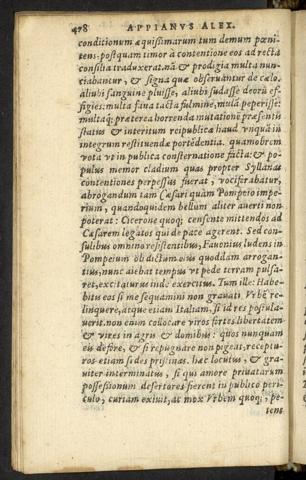 478 APPIANVS ALEX.
conditionum æquissimarum tum demum pœni-
tens: postquam timor à contentione eos ad recta
consilia traduxerat. nã & prodigia multa nun-
ciabantur, & signa quæ obseruãtur de cælo.
alibi sanguine pluisse, alibi sudasse deorũ ef-
figies: multa fana tacta fulmine, mulã peperisse:
multaq; præterea horrenda mutationẽ præsentis
status & interitum reipublicæ haud vnquã in
integrum restituendæ portẽdentia. quamobrem
vota vt in publica consternatione facta: & po-
pulus memor cladium quas propter Syllanas
contentiones perpessus fuerat, vociferabatur,
abrogandum tam Cæsari quàm Pompeio impe-
rium, quandoquidem bellum aliter auerti non
poterat: Cicerone quoq; censente mittendos ad
Cæsarem legatos qui de pace agerent. Sed con-
sulibus omnino resistentibus, Fauonius ludens in
Pompeium ob dictum eius quoddam arrogan-
tius, nunc aiebat tempus vt pede terram pulsa-
ret, excitaturus indè exercitus. Tum ille: Habe-
bitis eos si me sequamini non grauati Vrbẽ re-
linquere, atque etiam Italiam, si id res postula-
uerit. non enim collocare viros fortes libertatem
& vires in agris & domibus: quòs nunquam
eis deesse, & si repugnare non pigeat, receptu-
ros etiam sedes pristinas. hæc locutus, & gra-
uiter interminatus, si qui amore priuatarum
possessionum desertores fierent in publico peri-
culo, curiam exiuit, ac mox Vrbem quoq;, pe-
tens